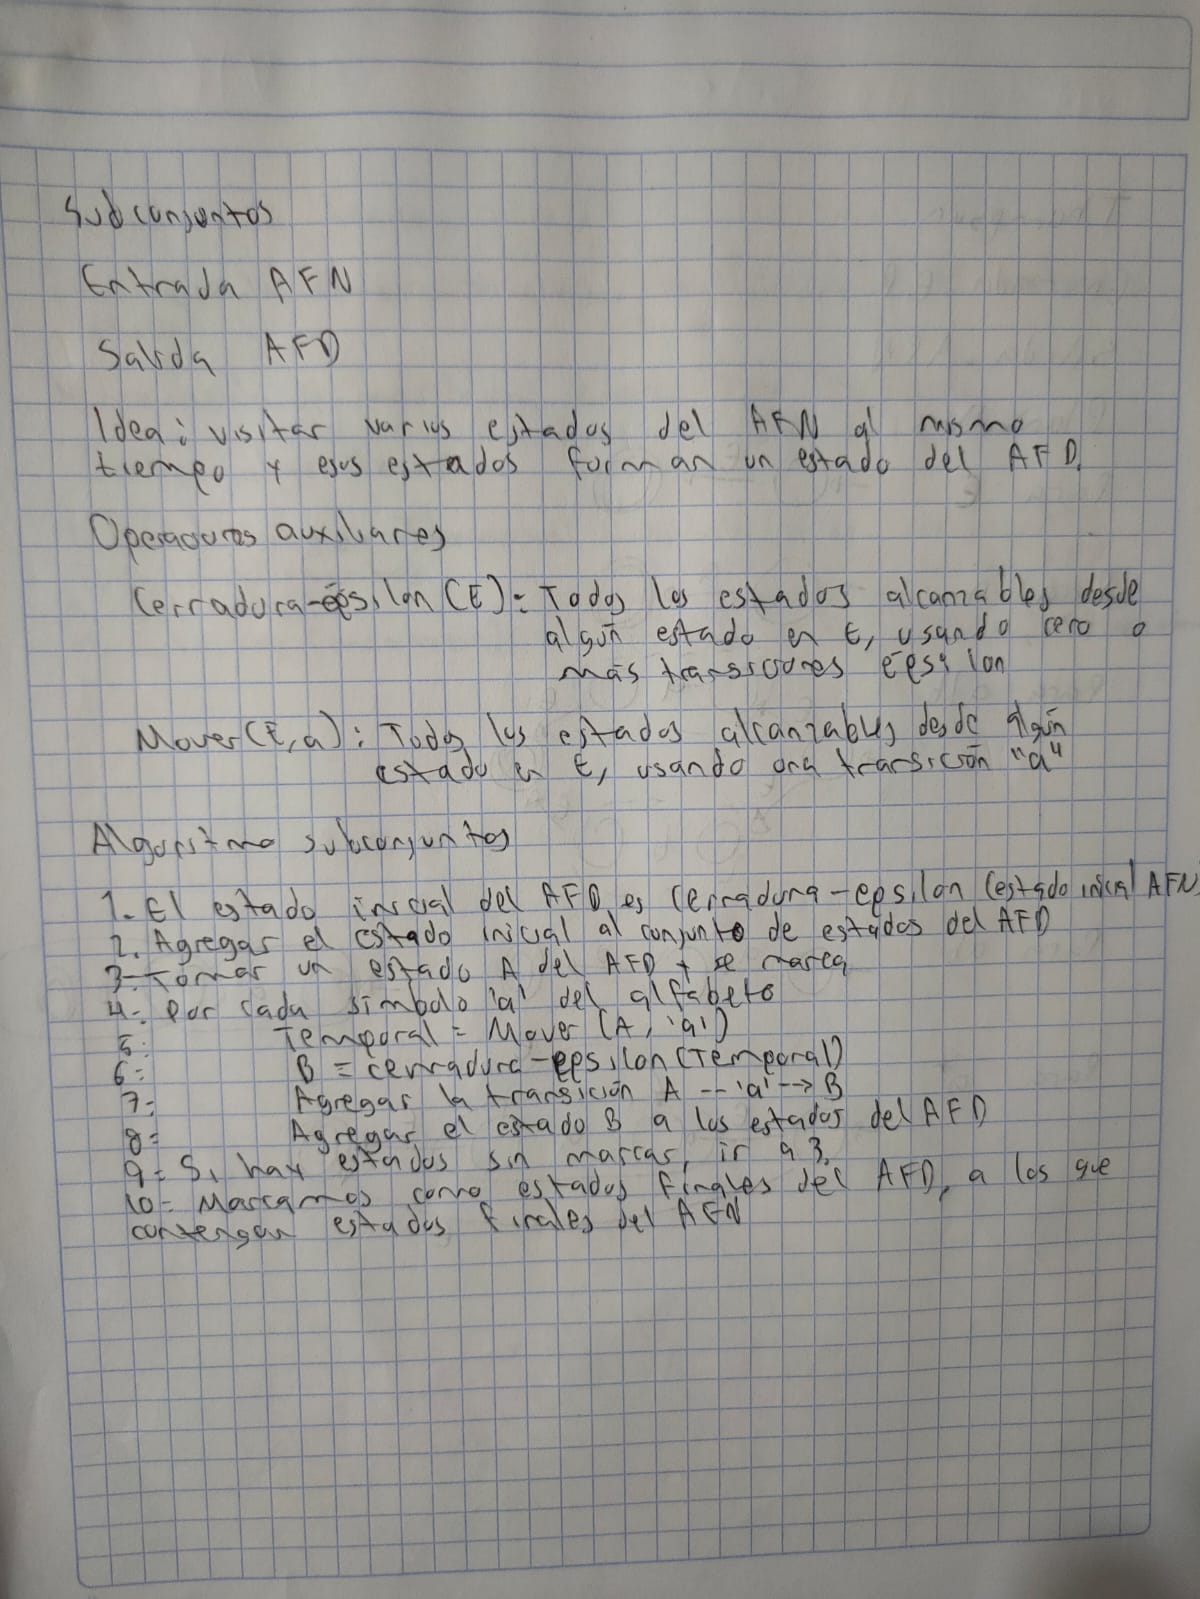 Subconjuntos
Entrada AFN
Salida AFD
Idea: visitar varios estados del AFN al mismo
tiempo y esos estados forman un estado del AFD.
Operadores auxiliares
Cerradura-epsilon (E): Todos los estados alcanzables desde
algún estado en E, usando cero o
más transiciones epsilon
Mover(E,a): Todos los estados alcanzables desde algún
estado en E, usando una transición "a"
Algoritmo subconjuntos
1.- El estado inicial del AFD es cerradura-epsilon (estado inicial AFN
2. Agregar el estado inicial al conjunto de estados del AFD
3- Tomar un estado A del AFD y se marca
4- Por cada simbolo 'a' del alfabeto
5: Temporal = Mover (A, 'a')
6: B = cerradura-epsilon (Temporal)
7: Agregar la transición A --'a'--> B
8: Agregar el estado B a los estados del AFD
9: Si hay estados sin marcar, ir a 3.
10- Marcamos como estados finales del AFD, a los que
contengan estados finales del AFN